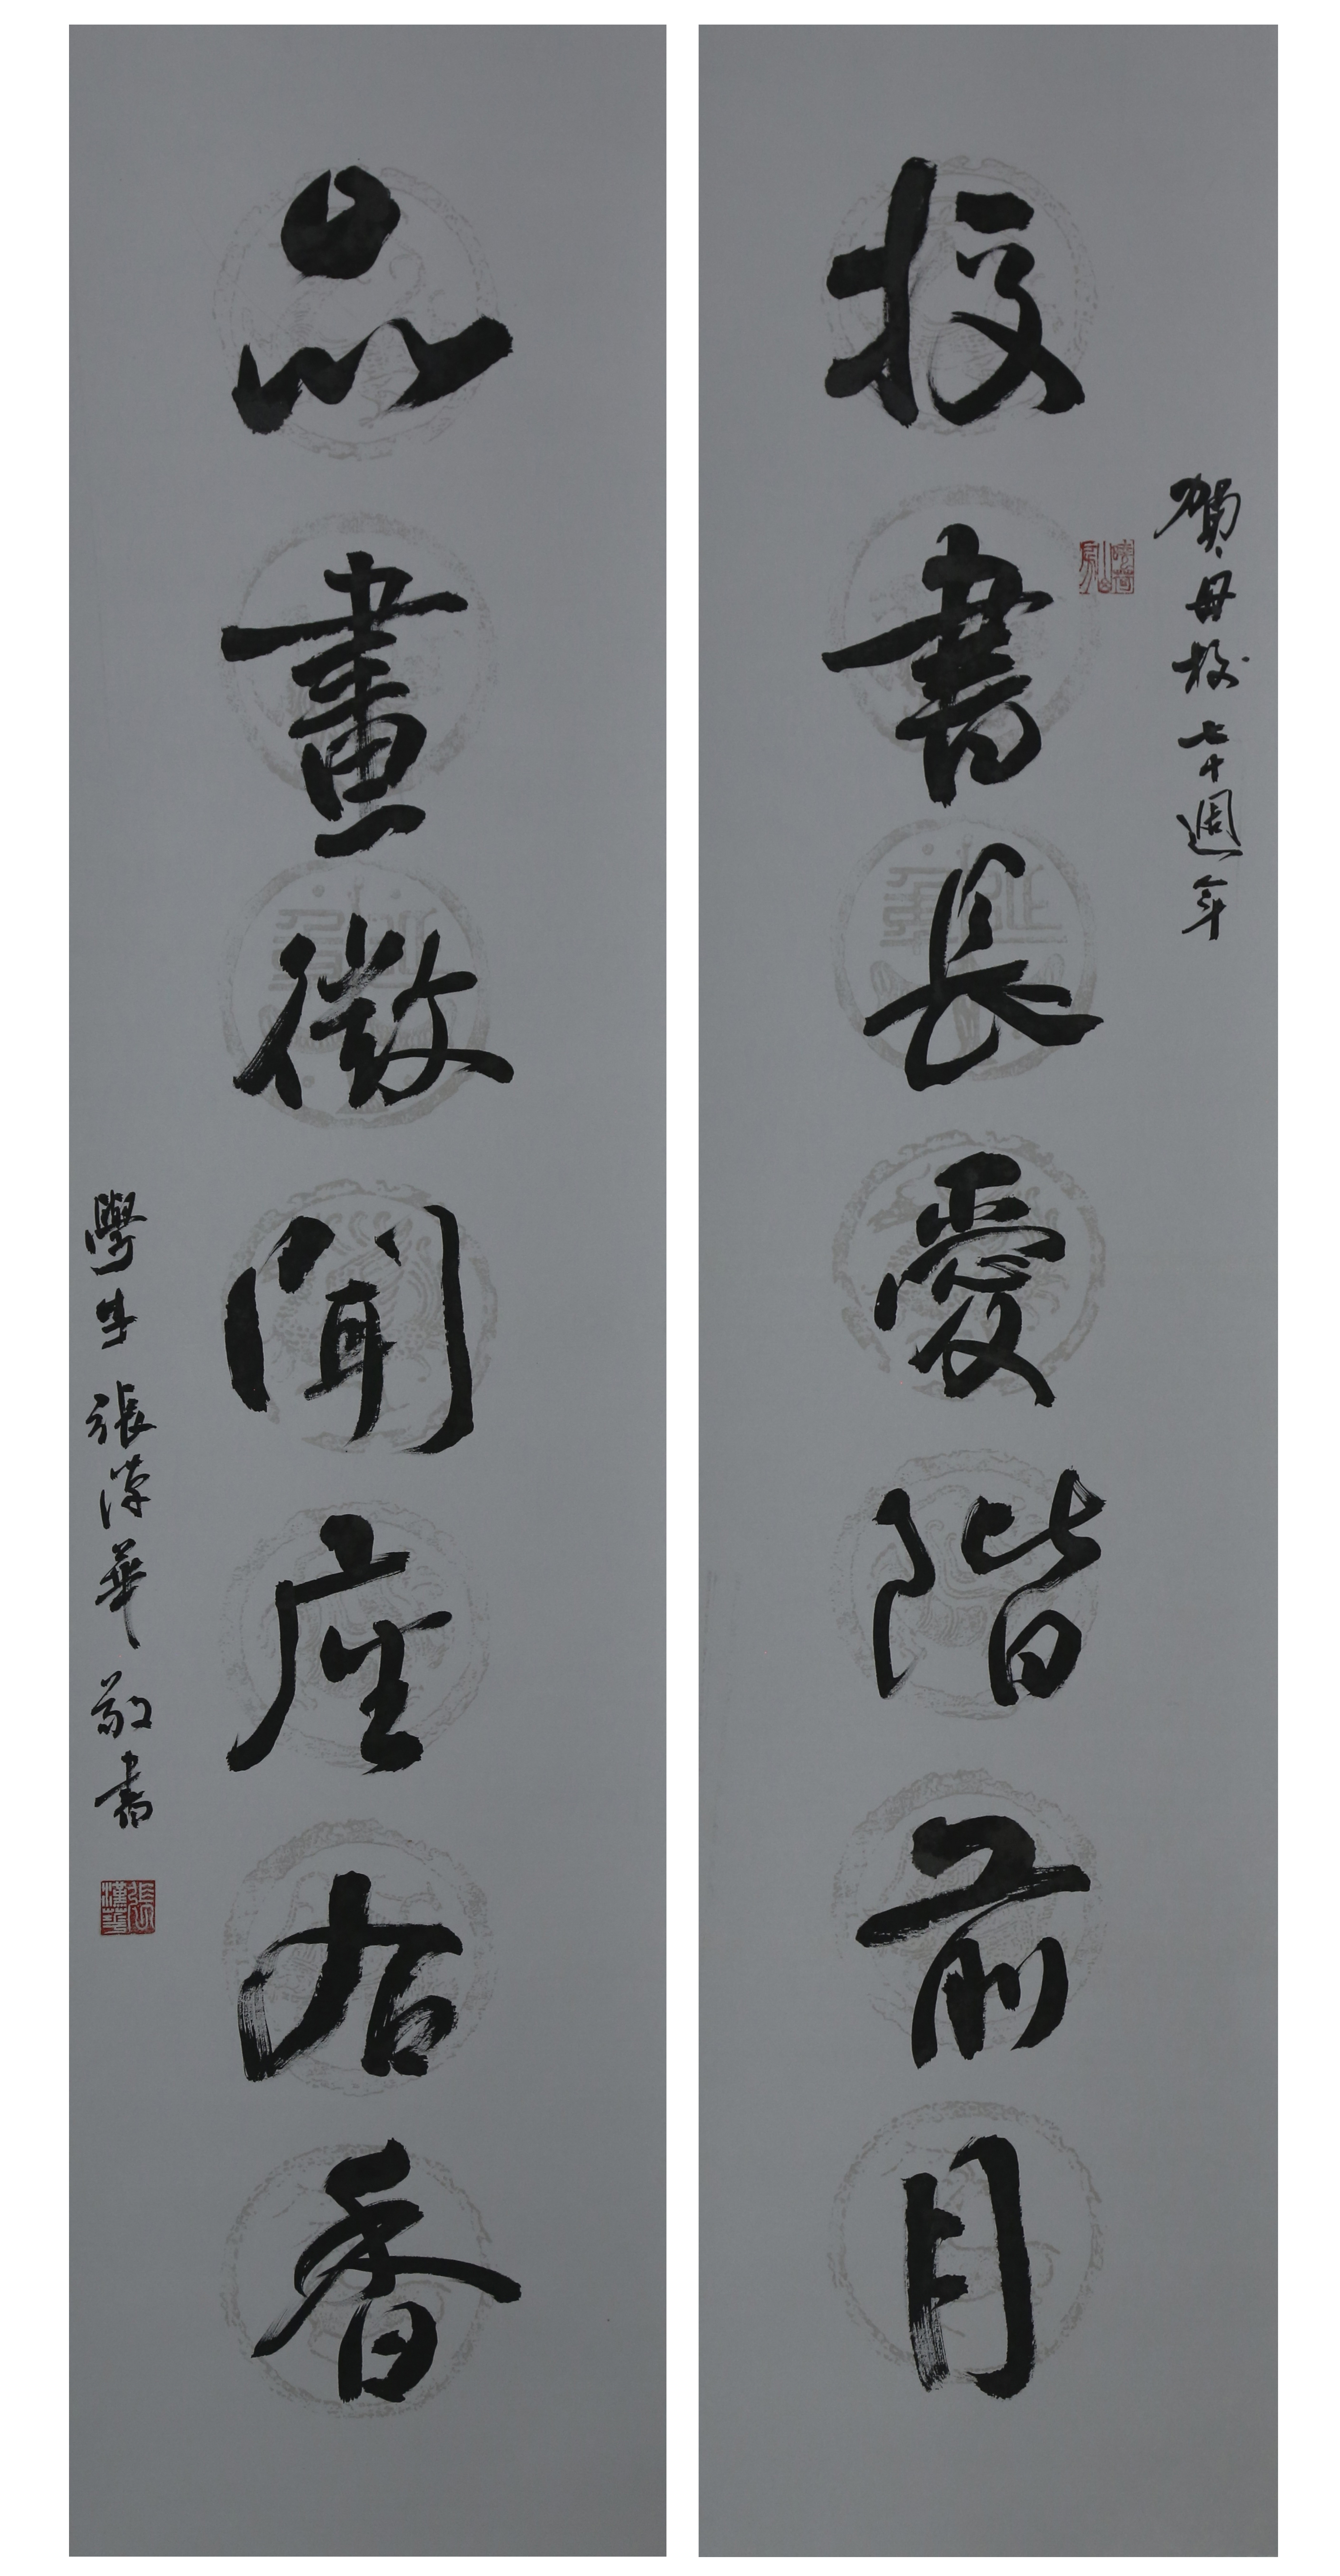 賀母校七十週年
校書長愛階前月
品畫微聞座右香
學生張漢華敬書
張漢華